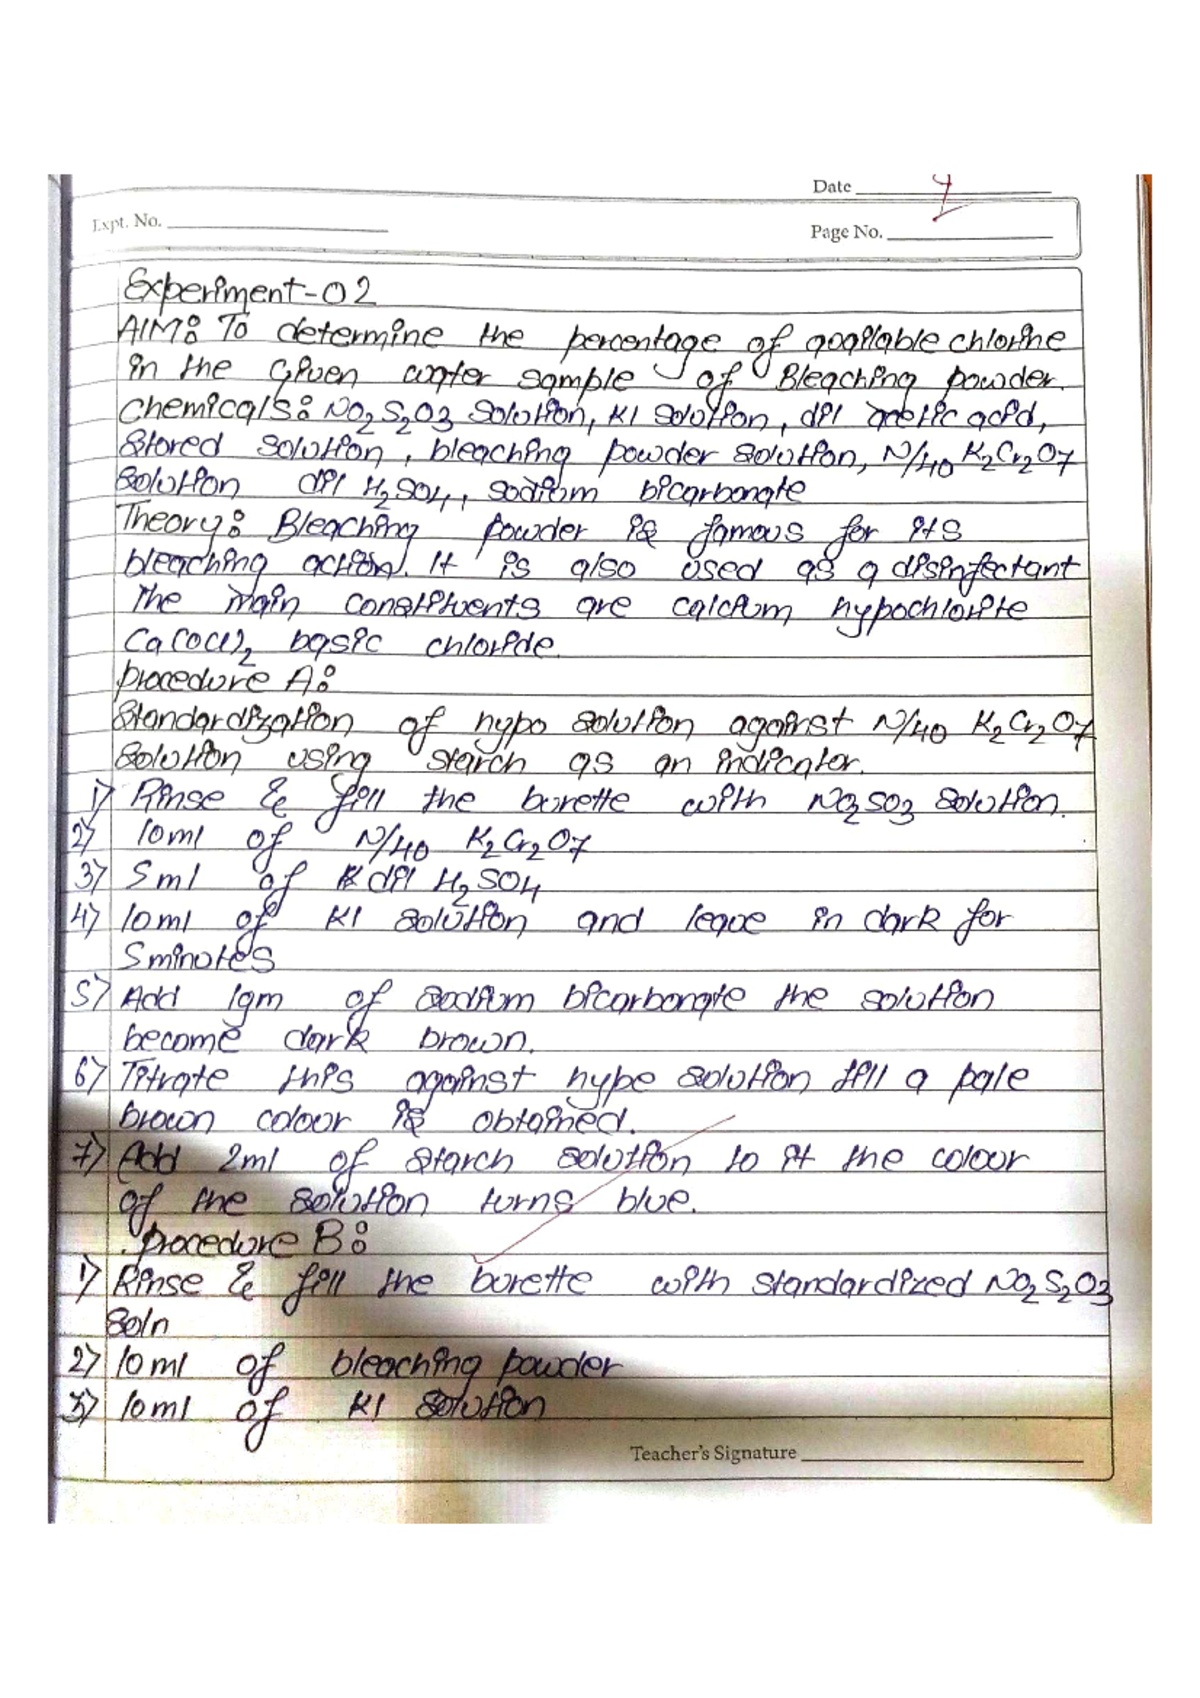 Date
Expt. No.
Page No.
Experiment-02
AIM: To determine the percentage of available chlorine
in the Given water sample of Bleaching powder.
Chemicals: Na2S2O3 Solution, KI solution, dil acetic acid,
Stored solution, bleaching powder solution, N/40 K2Cr2O7
solution dil H2SO4, sodium bicarbonate
Theory: Bleaching powder is famous for its
bleaching action. It is also used as a disinfectant
The main constituents are calcium hypochlorite
Ca(OCl)2 basic chloride.
procedure A:
Standardization of hypo solution against N/40 K2Cr2O7
solution using starch as an indicator.
1) Rinse & fill the burette with Na2SO3 solution.
2) 10ml of N/40 K2Cr2O7
3) 5ml of dil H2SO4
4) 10ml of KI solution and leave in dark for
5minutes
5) Add 1gm of sodium bicarbonate the solution
become dark brown.
6) Titrate this against hype solution till a pale
brown colour is obtained.
7) Add 2ml of starch solution to it the colour
of the solution turns blue.
.procedure B:
1) Rinse & fill the burette with standardized Na2S2O3
Soln
2) 10ml of bleaching powder
3) 10ml of KI solution
Teacher's Signature